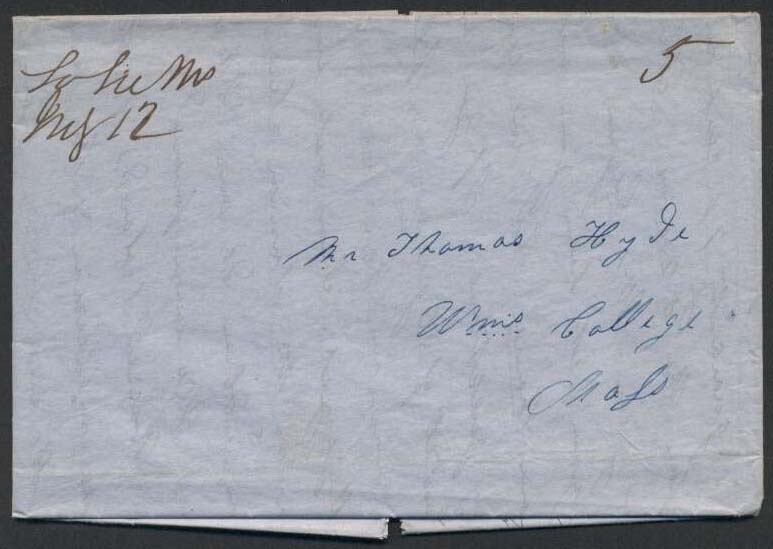 So Lee Ms
My 12
5
Mr Thomas Hyde
Wms College
Mass